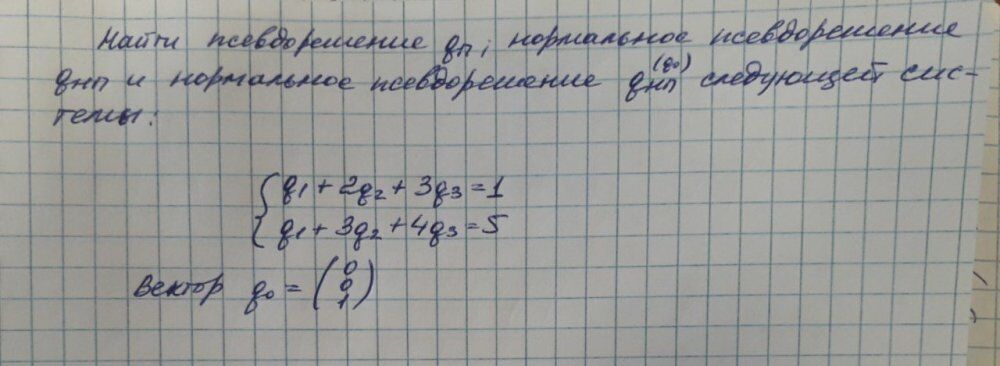 Найти псевдорешение qп, нормальное псевдорешение
qнп и нормальное псевдорешение qнп^(q0) следующей сис-
темы:
{ q1 + 2q2 + 3q3 = 1
q1 + 3q2 + 4q3 = 5
Вектор q0 = (0 0 1)